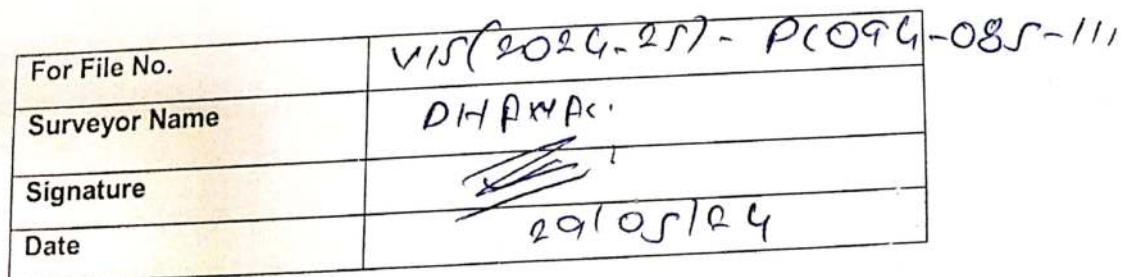 For File No. VIS(2024-25)-PC094-085-111
Surveyor Name
Signature
Date 29/05/24